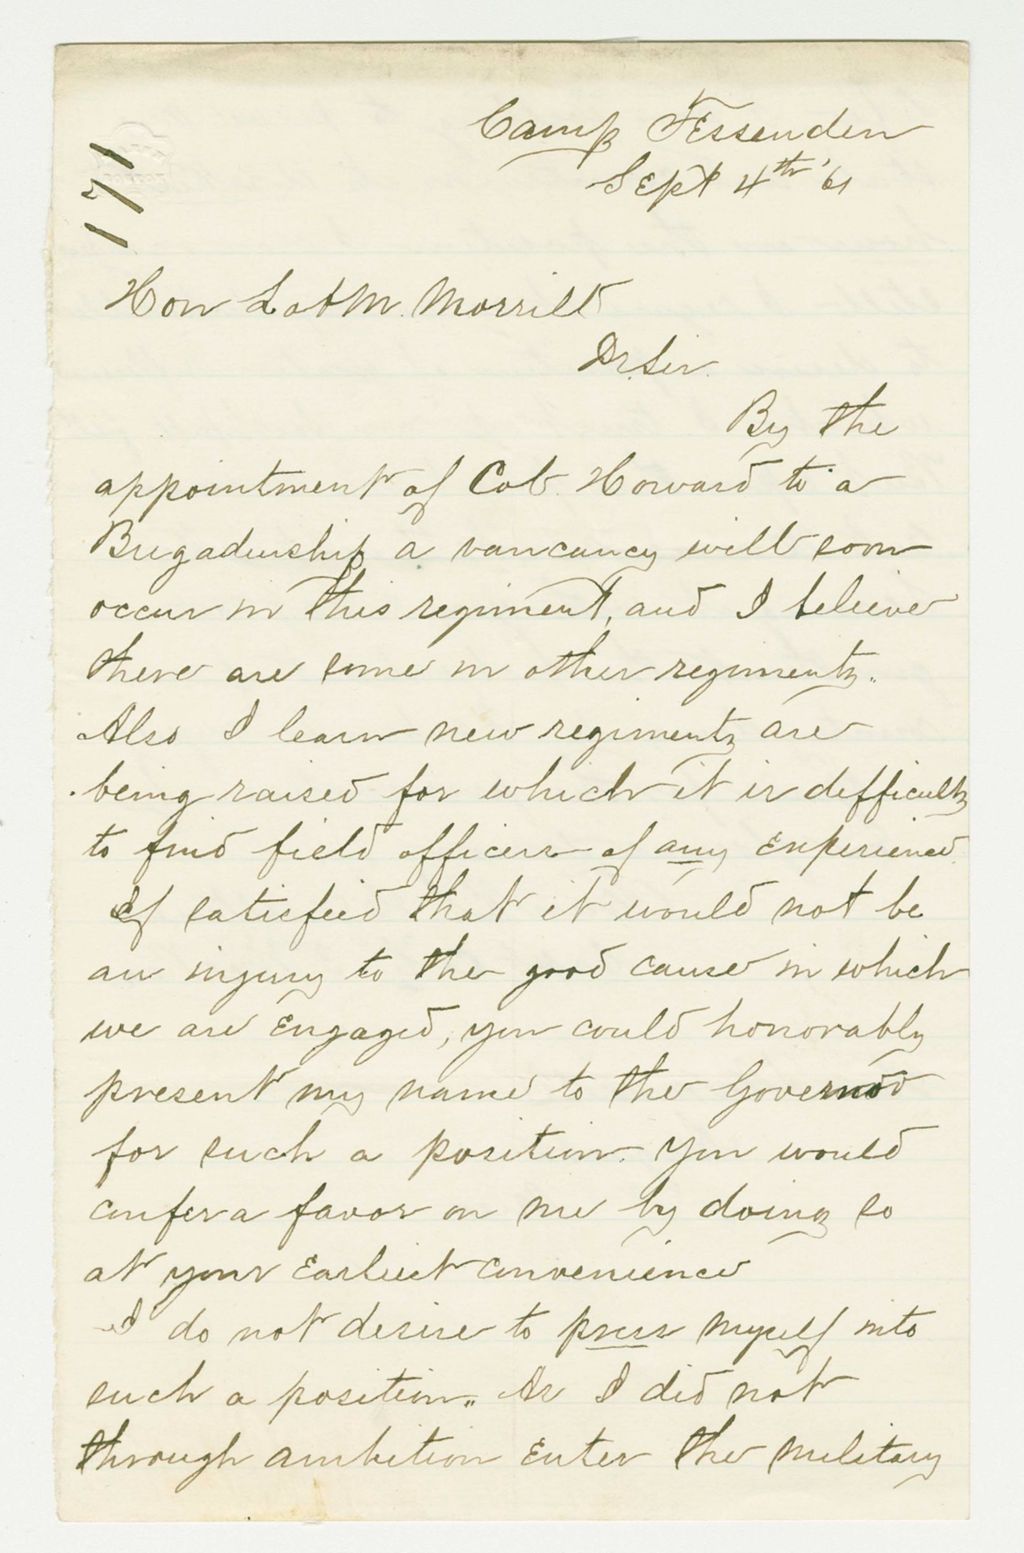 171
Camp Fessenden
Sept 4th '61
Hon Lot M. Morrill
Dr. Sir.
By the
appointment of Col. Howard to a
Brigadiership a vancancy will soon
occur in this regiment, and I believe
there are some in other regiments.
Also I learn new regiments are
being raised for which it is difficult
to find field officers of any experience.
If satisfied that it would not be
an injury to the good cause in which
we are engaged, you could honorably
present my name to the Governor
for such a position. You would
confer a favor on me by doing so
at your earliest convenience
I do not desire to press myself into
such a position. As I did not
through ambition enter the military